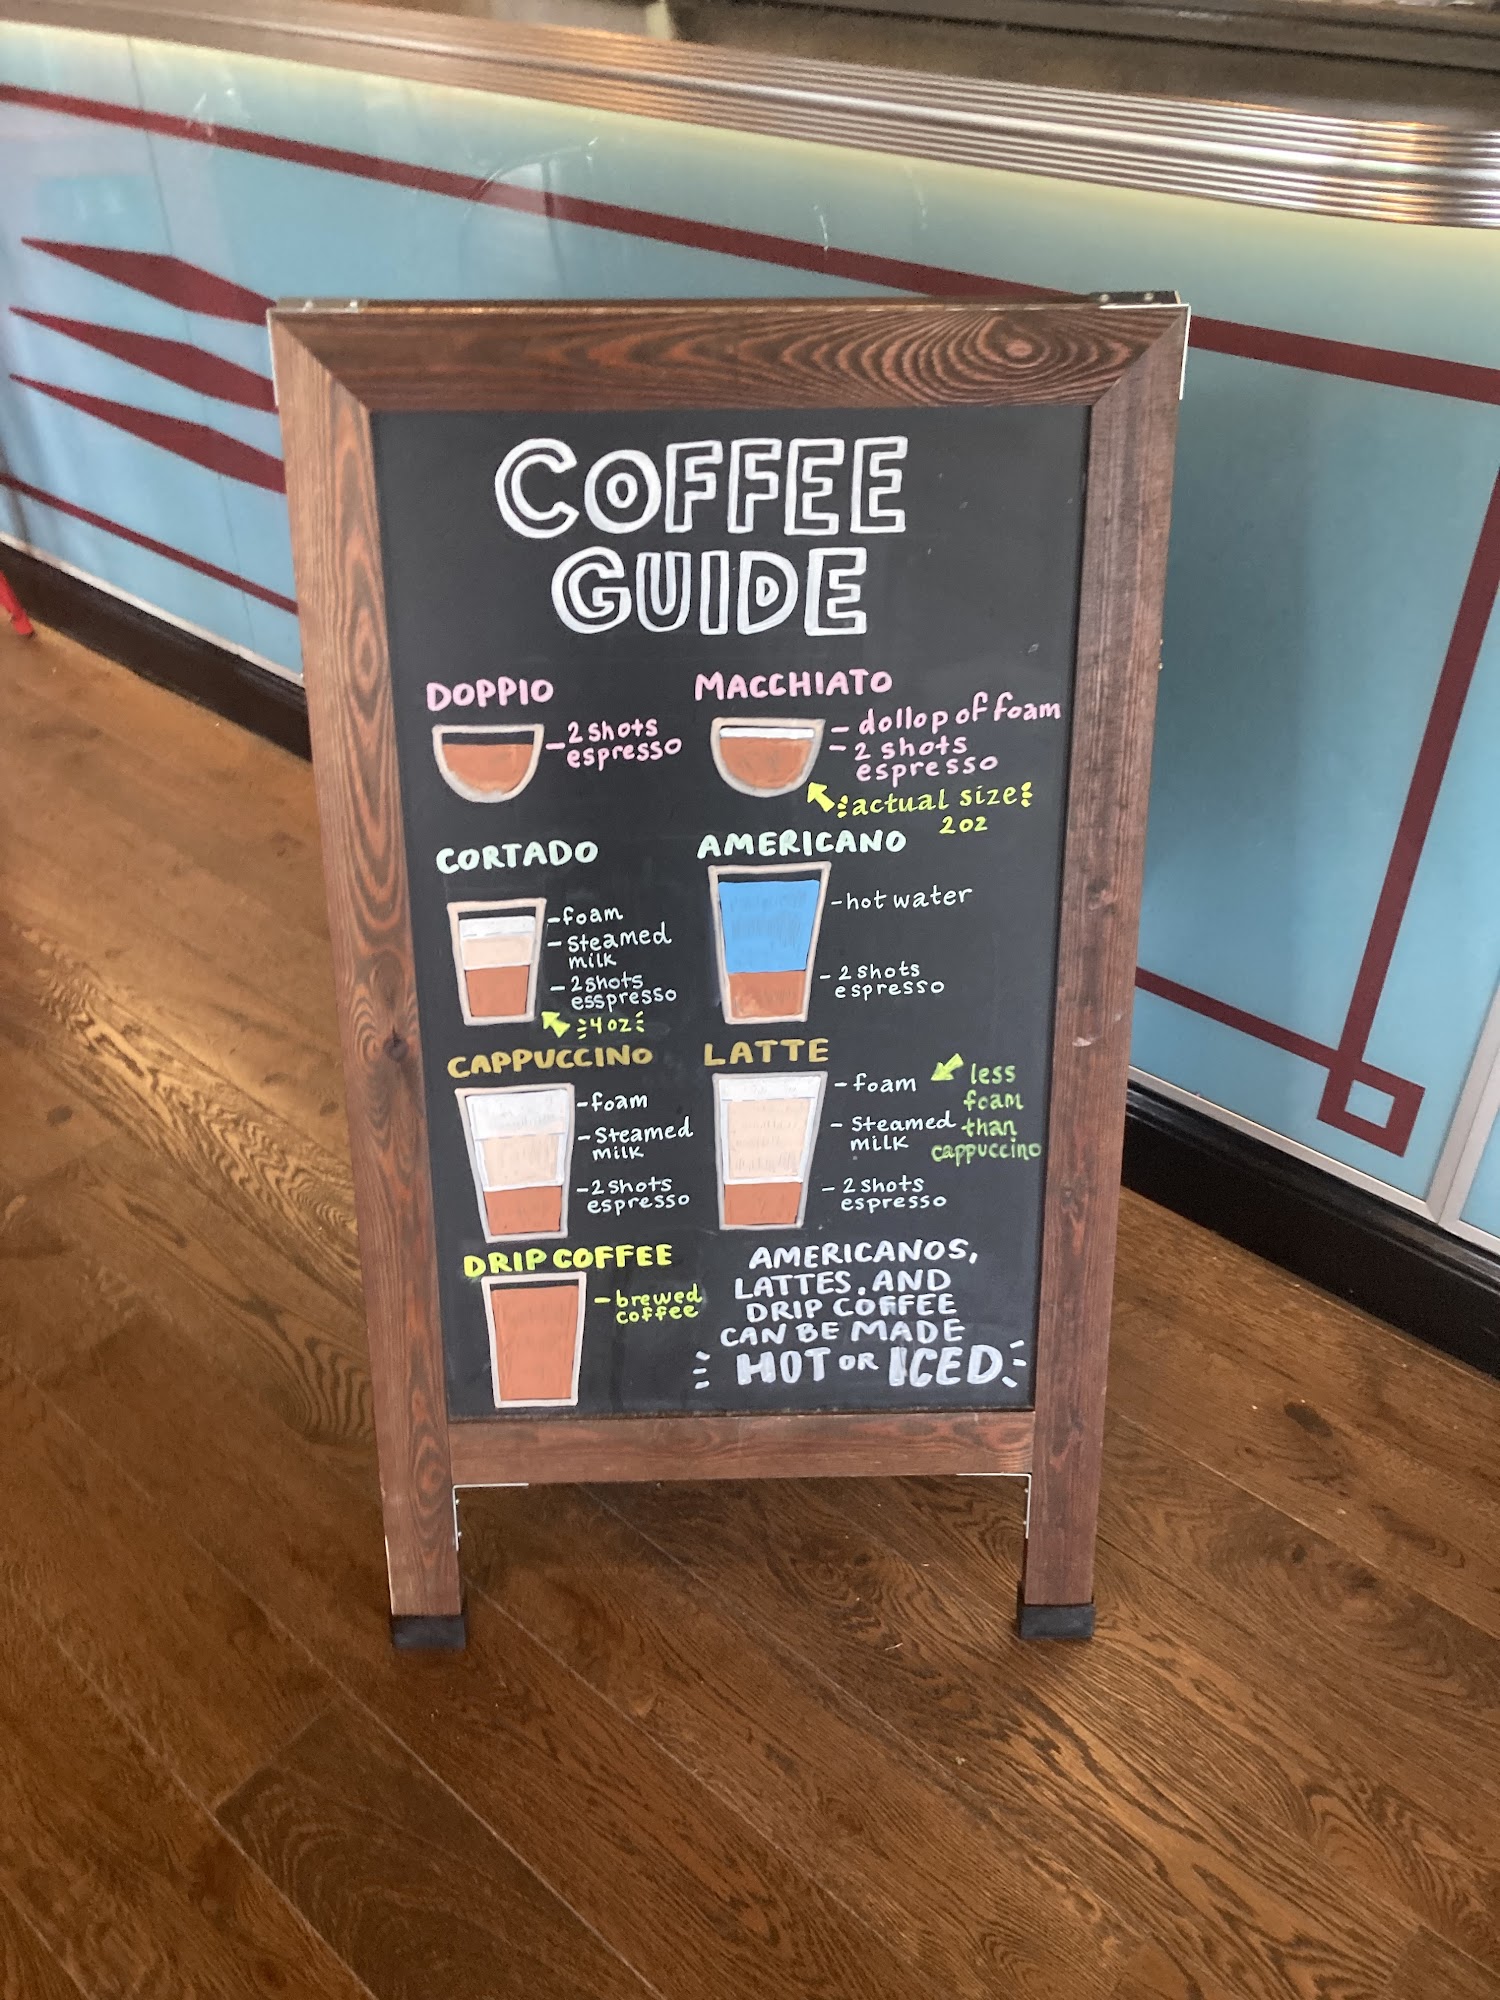 COFFEE
GUIDE
DOPPIO
-2 shots
espresso
MACCHIATO
- dollop of foam
- 2 shots
espresso
actual size
2oz
CORTADO
-foam
- steamed
milk
- 2 shots
esspresso
4oz
AMERICANO
-hot water
- 2 shots
espresso
CAPPUCCINO
-foam
-steamed
milk
-2 shots
espresso
LATTE
-foam
- steamed
milk
- 2 shots
espresso
less
foam
than
cappuccino
DRIP COFFEE
- brewed
coffee
AMERICANOS,
LATTES, AND
DRIP COFFEE
CAN BE MADE
HOT OR ICED